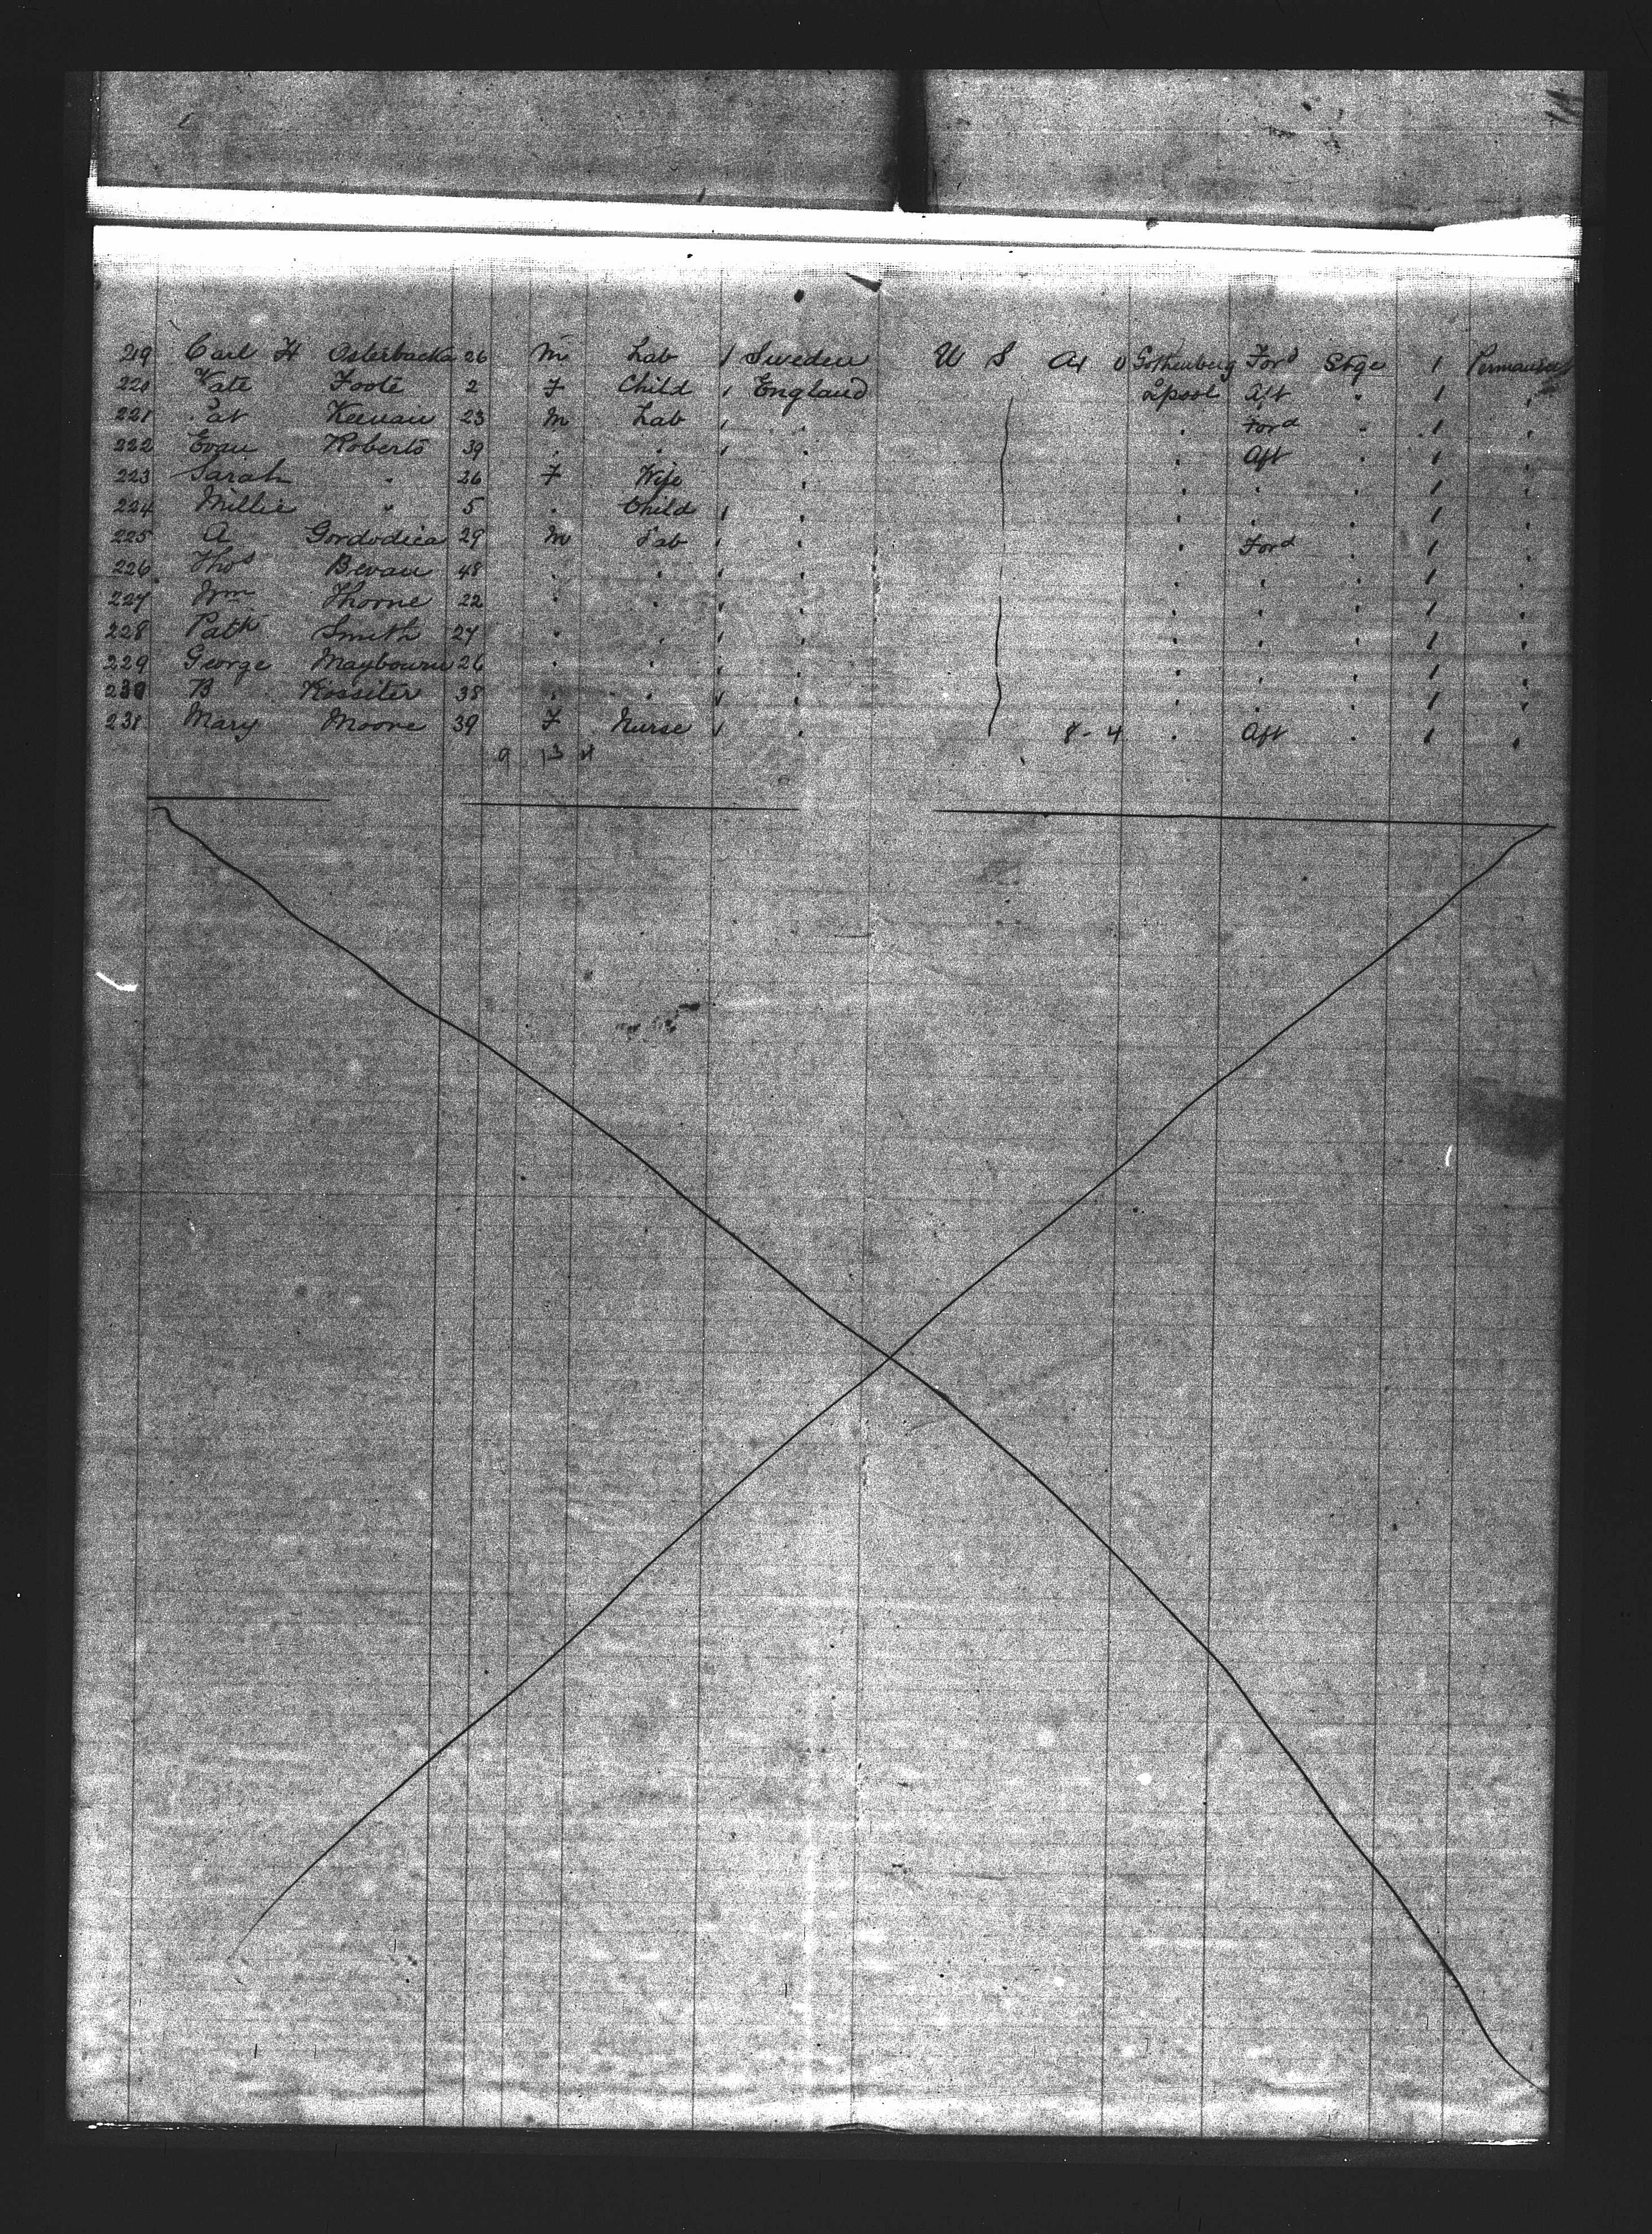 219 Carl H Osterbacka 26 M Lab 1 Sweden U S A 1 0 Gothenburg Ford Stge 1 Permanent
220 Kate Foote 2 F Child 1 England Lpool Aft " 1 "
221 Pat Keenan 23 M Lab " " " Ford " 1 "
222 Evan Roberts 39 " " " " " Aft " 1 "
223 Sarah " 26 F Wife " " " " 1 "
224 Millie " 5 " Child 1 " " " " 1 "
225 A 29 M Lab " " " Ford " 1 "
226 Thos Bevan 48 " " " " " " " 1 "
227 Wm Thorne 22 " " " " " " " 1 "
228 Patk Smith 27 " " " " " " " 1 "
229 George Maybourn 26 " " " " " " " 1 "
230 B Rossiter 38 " " " " " " " 1 "
231 Mary Moore 39 F Nurse 1 " 8-4 " Aft " 1 "
9 13 4